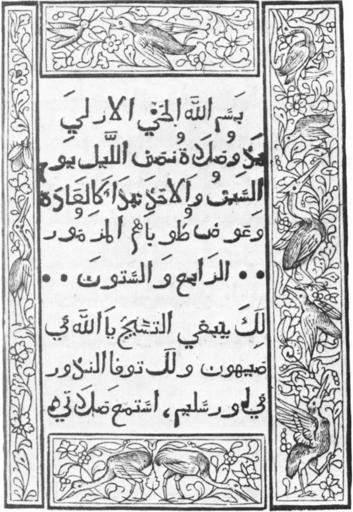 بسم الله الحي الازلي
هذه صلاة نصف الليل يوم
السبت والاحد كالعادة
وعوض طوباهم المزمور
•• الرابع والستون ••
لك ينبغي التسبيح يا الله في
صيهون ولك توفا النذور
في اورسليم، استمع صلاتي